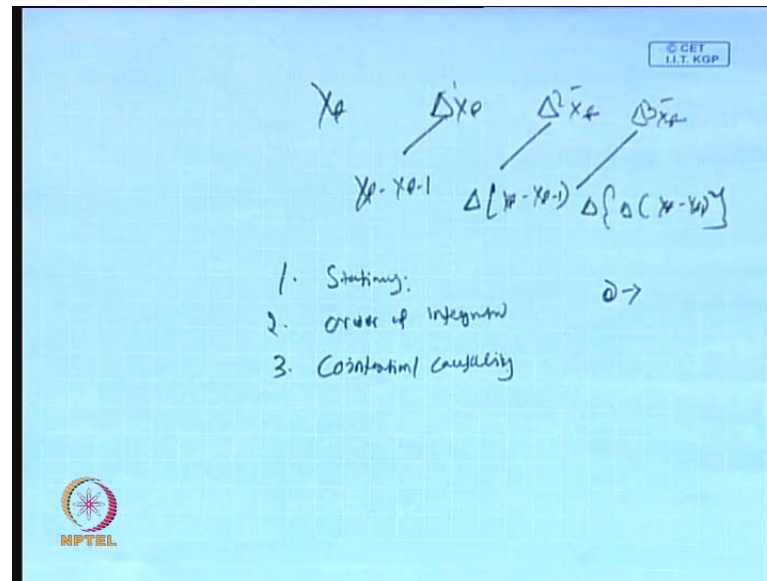 © CET
I.I.T. KGP
Xt Δ¹Xt Δ²Xt Δ³Xt
Xt - Xt-1 Δ[Xt - Xt-1) Δ{Δ(Xt - Xt-1)}
1. Stationary:
2. order of integration 0→
3. Cointegration/ causality
NPTEL